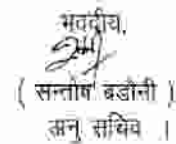 भवदीय,
( सन्तोष बडोनी )
अनु सचिव ।